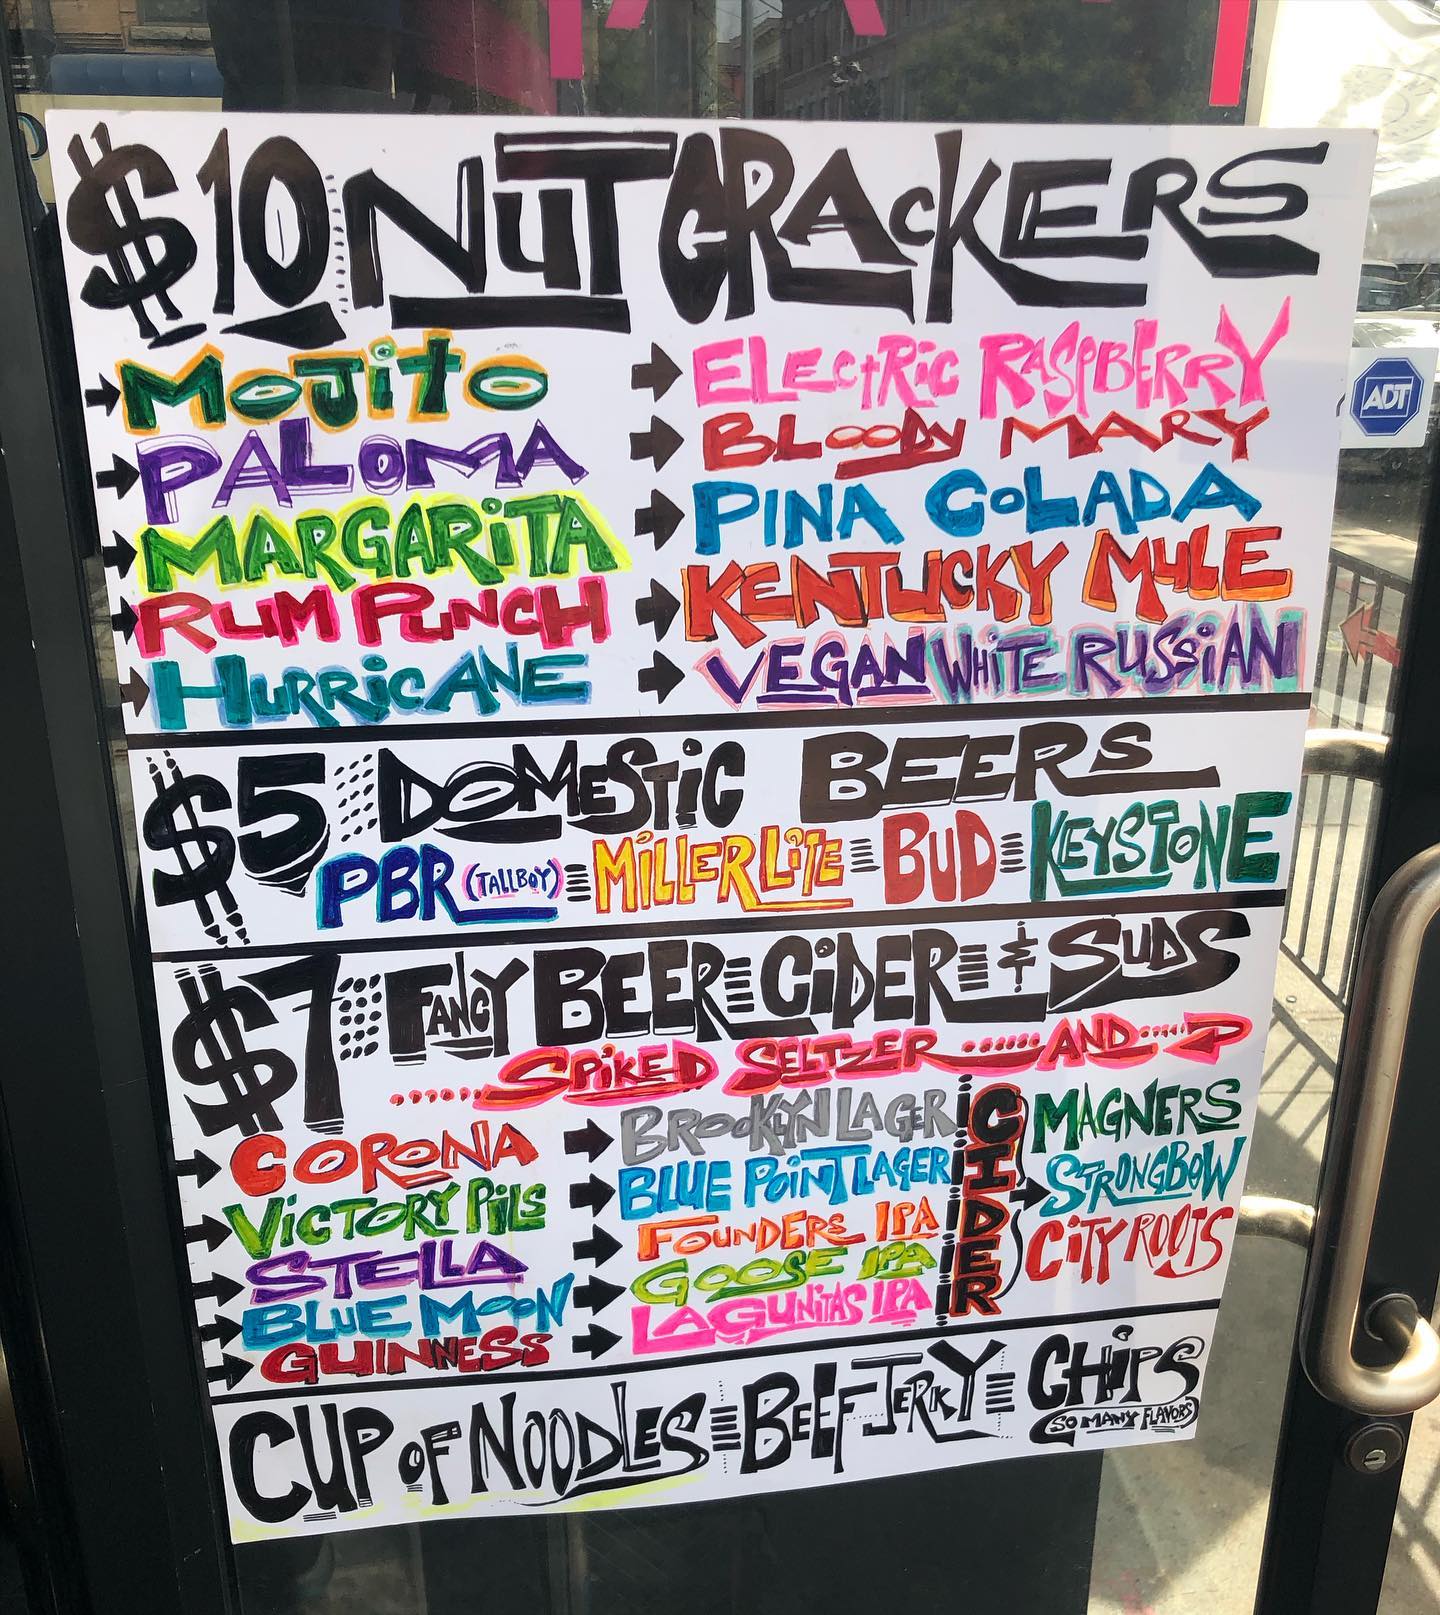 $10 NUTCRACKERS
MOJITO
PALOMA
MARGARITA
RUM PUNCH
HURRICANE
ELECTRIC RASPBERRY
BLOODY MARY
PINA COLADA
KENTUCKY MULE
VEGAN WHITE RUSSIAN
$5 DOMESTIC BEERS
PBR (TALLBOY) MILLER LITE BUD KEYSTONE
$7 FANCY BEER CIDER & SUDS
SPIKED SELTZER AND
CORONA
VICTORY PILS
STELLA
BLUE MOON
GUINNESS
BROOKLYN LAGER
BLUE POINT LAGER
FOUNDERS IPA
GOOSE IPA
LAGUNITAS IPA
CIDER
MAGNERS
STRONGBOW
CITY ROOTS
CUP OF NOODLES BEEF JERKY CHIPS
(SO MANY FLAVORS)
ADT